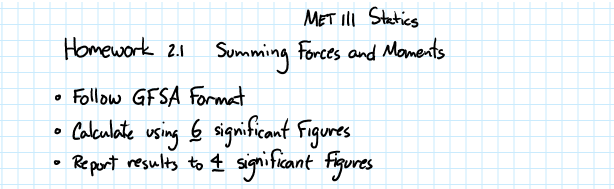 MET 111 Statics
Homework 2.1 Summing Forces and Moments
• Follow GFSA Format
• Calculate using 6 significant Figures
• Report results to 4 significant figures